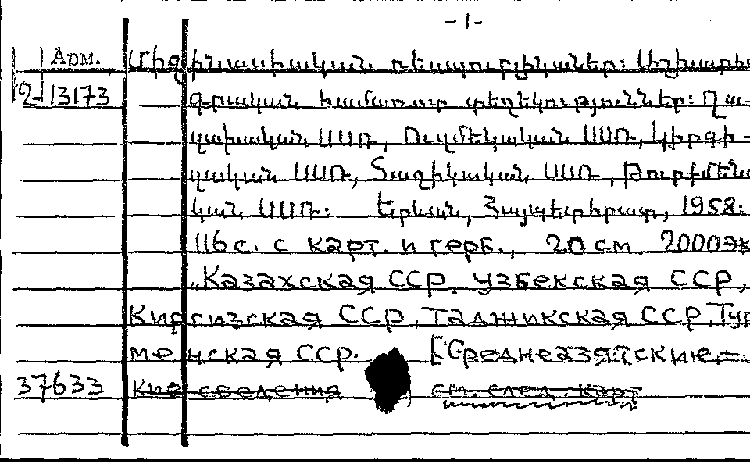 -1-
Арм. Միջինասիական ռեսպուբլիկաներ: Աշխարհա
2-13173 գրական համառոտ տեղեկություններ: Ղա-
զախական ՍՍՌ, Ուզբեկական ՍՍՌ, Կիրգի-
զական ՍՍՌ, Տաջիկական ՍՍՌ, Թուրքմենա
կան ՍՍՌ: Երևան, Հայպետհրատ, 1958.
116 с. с карт. и герб., 20 см 2000 эк
Казахская ССР, Узбекская ССР,
Киргизская ССР, Таджикская ССР, Тур
менская ССР. [Среднеазятские
37633 сведения см. след. карт